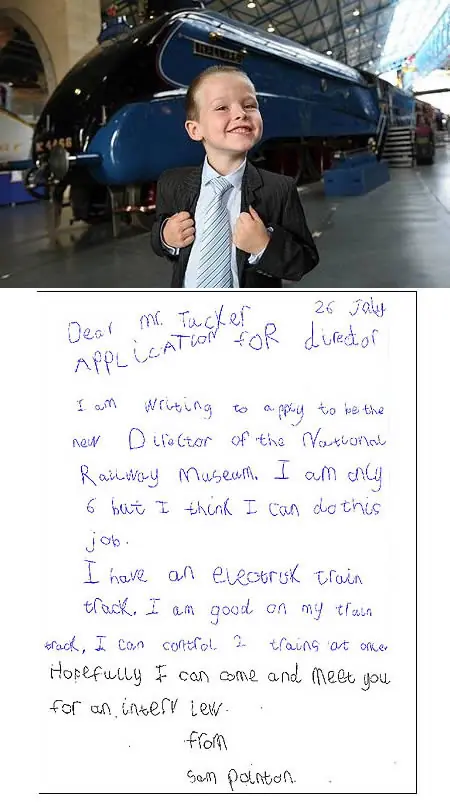 4468
Dear Mr. Tucker 26 July
APPLiCATiON FOR director
I am writing to apply to be the
new Director of the National
Railway Museum. I am only
6 but I think I can do this
job.
I have an electrick train
track. I am good on my train
track. I can control 2 trains at once.
Hopefully I can come and meet you
for an interview.
from
Sam Pointon.